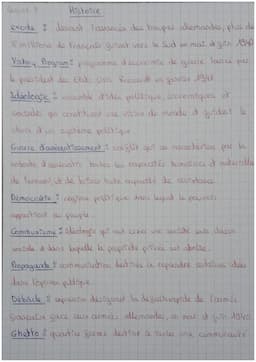 Histoire
exode : devant l'avancée des troupes allemandes, plus de
8 millions de Français fuient vers le Sud en mai et juin 1940
Victory Program : programme d'économie de guerre lancé par
le président des États-Unis Roosevelt en janvier 1942
Idéologie : ensemble d'idées politiques, économiques et
sociales qui constituent une vision du monde et guident le
choix d'un système politique
Guerre d'anéantissement : conflit qui se caractérise par la
volonté d'anéantir toutes les capacités humaines et matérielles
de l'ennemi, et de briser toute capacité de résistance
Démocratie : régime politique dans lequel le pouvoir
appartient au peuple
Communisme : idéologie qui veut créer une société sans classe
sociale et dans laquelle la propriété privée est abolie.
Propagande : communication destinée à répandre certaines idées
dans l'opinion publique
Débâcle : expression désignant la de l'armée
française face aux armées allemandes, en mai et juin 1940.
Ghetto : quartier fermé destiné à isoler une communauté